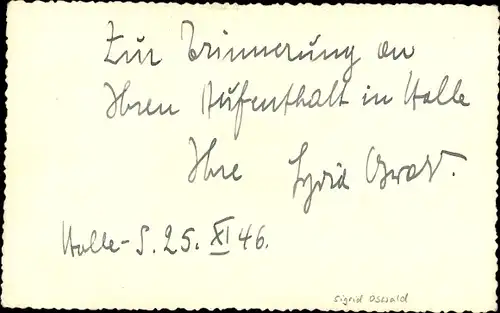 Zur Erinnerung an
Ihren Aufenthalt in Halle
Ihre Sigrid Oswald.
Halle-S. 25. XI 46.
Sigrid Oswald